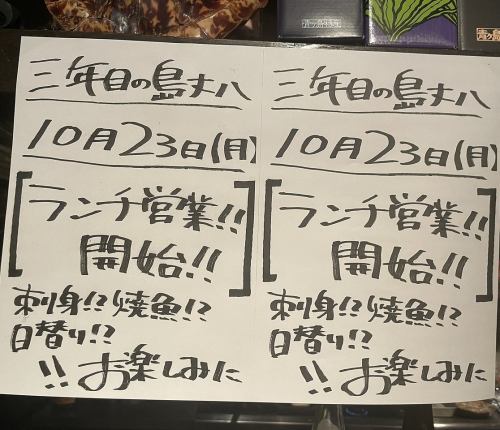 三年目の島丈八
10月23日(月)
[ランチ営業!!
開始!!]
刺身!?焼魚!?
日替り!?
!!お楽しみに
三年目の島丈八
10月23日(月)
[ランチ営業!!
開始!!]
刺身!?焼魚!?
日替り!?
!!お楽しみに